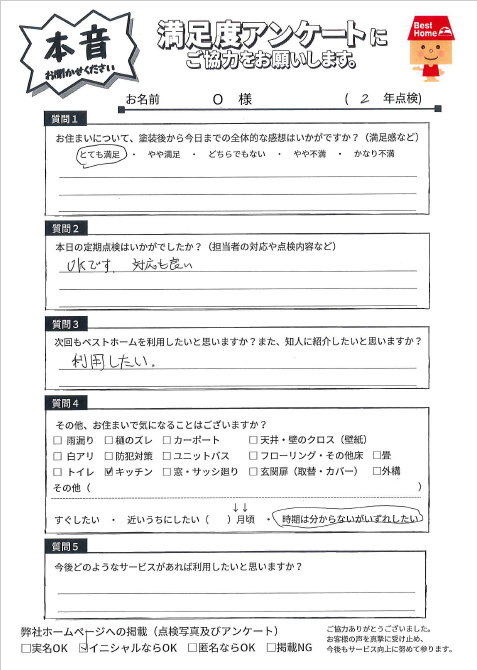 本音
お聞かせください
満足度アンケートに
ご協力をお願いします。
Best Home
お名前 O 様 ( 2 年点検)
質問1
お住まいについて、塗装後から今日までの全体的な感想はいかがですか?(満足感など)
とても満足 ・ やや満足 ・ どちらでもない ・ やや不満 ・ かなり不満
質問2
本日の定期点検はいかがでしたか?(担当者の対応や点検内容など)
OKです。 対応も良い
質問3
次回もベストホームを利用したいと思いますか?また、知人に紹介したいと思いますか?
利用したい。
質問4
その他、お住まいで気になることはございますか?
☐ 雨漏り ☐ 樋のズレ ☐ カーポート ☐ 天井・壁のクロス(壁紙)
☐ 白アリ ☐ 防犯対策 ☐ ユニットバス ☐ フローリング・その他床 ☐畳
☐ トイレ ☑ キッチン ☐ 窓・サッシ廻り ☐ 玄関扉(取替・カバー) ☐外構
その他 ( )
↓↓
すぐしたい ・ 近いうちにしたい ( )月頃 ・ 時期は分からないがいずれしたい
質問5
今後どのようなサービスがあれば利用したいと思いますか?
弊社ホームページへの掲載(点検写真及びアンケート)
☐実名OK ☑イニシャルならOK ☐匿名ならOK ☐掲載NG
ご協力ありがとうございました。
お客様の声を真摯に受け止め、
今後もサービス向上に努めて参ります。